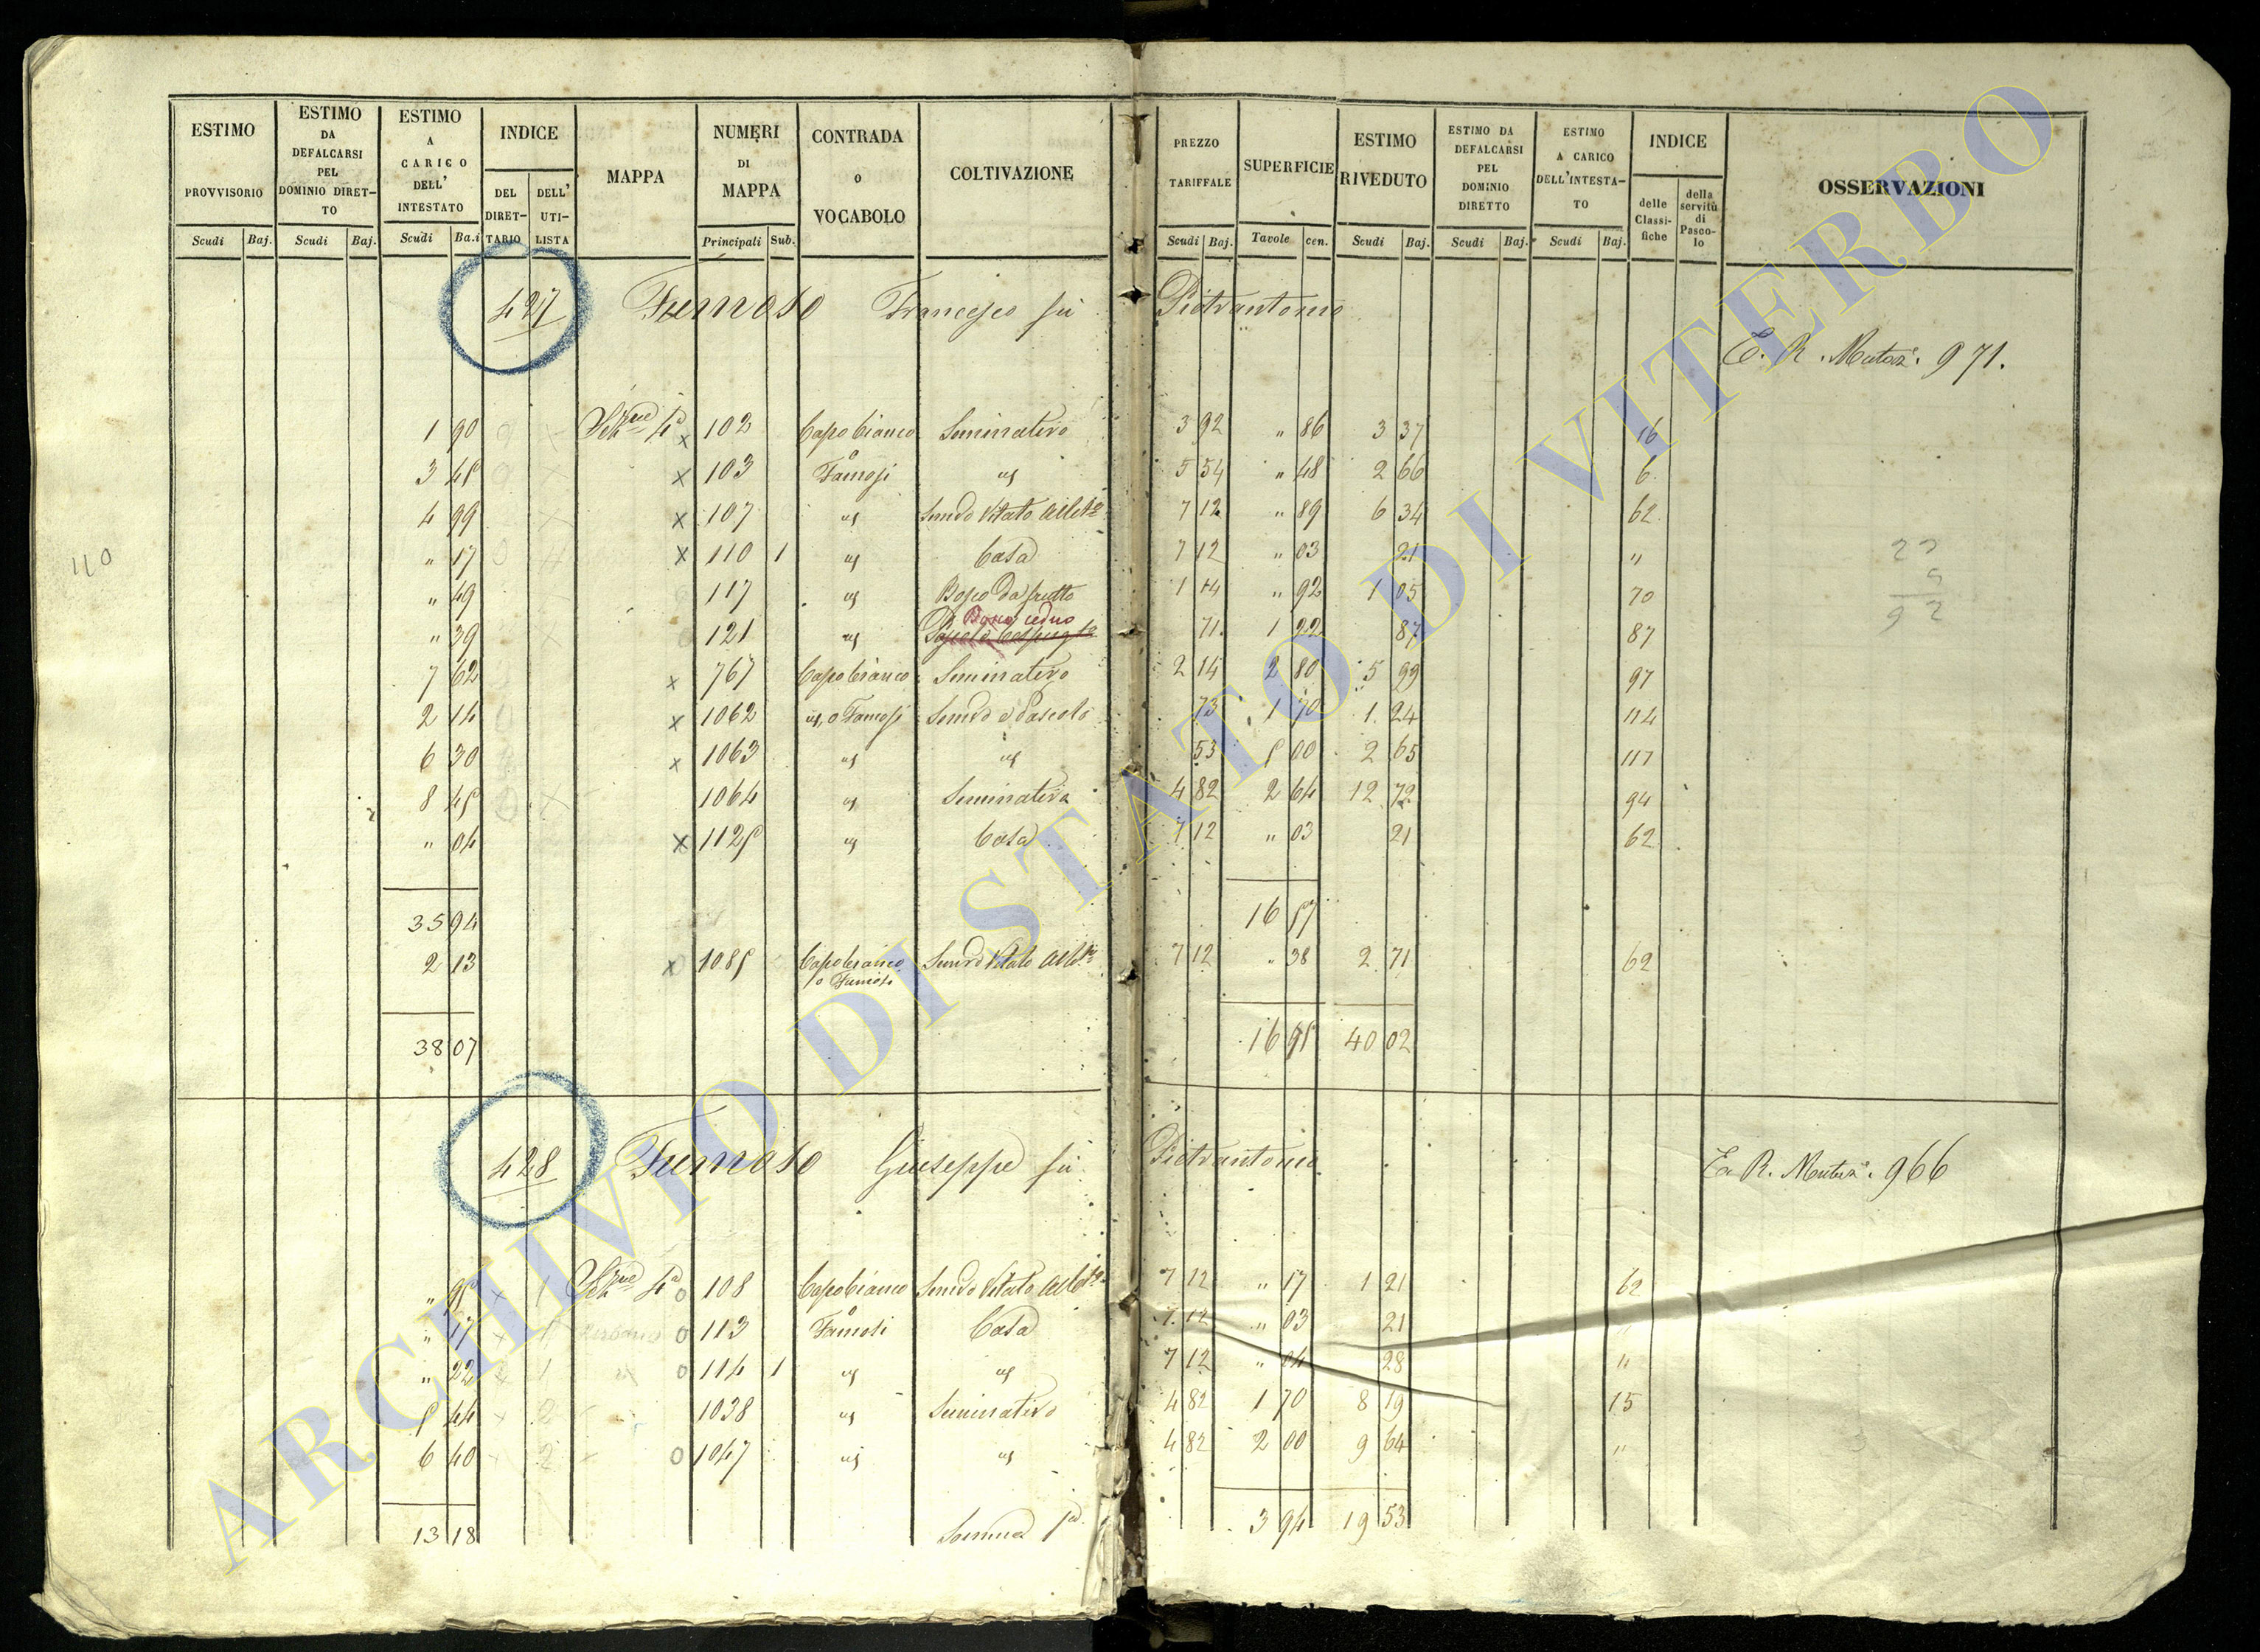 ESTIMO PROVVISORIO Scudi Baj.
ESTIMO DA DEFALCARSI PEL DOMINIO DIRET-TO Scudi Baj.
ESTIMO A CARICO DELL' INTESTATO Scudi Ba.i
INDICE DEL DIRET-TARIO DELL' UTI-LISTA
MAPPA
NUMERI DI MAPPA Principali Sub.
CONTRADA o VOCABOLO
COLTIVAZIONE
PREZZO TARIFFALE Scudi Baj.
SUPERFICIE Tavole cen.
ESTIMO RIVEDUTO Scudi Baj.
ESTIMO DA DEFALCARSI PEL DOMINIO DIRETTO Scudi Baj.
ESTIMO A CARICO DELL'INTESTA-TO Scudi Baj.
INDICE delle Classi-fiche della servitù di Pasco-lo
OSSERVAZIONI
427 Francesco fu Pietrantonio
E. R. Mutaz. 971.
1 90 x 102 Capobianco Seminativo 3 92 " 86 3 37 16
3 45 x 103 o Famosi 5 54 " 48 2 66 6
4 99 x 107 Vitato 7 12 " 89 6 34 62
" 17 x 110 1 Casa 7 12 " 03 21 "
" 49 117 Bosco da frutto 1 14 " 92 1 05 70
Bosco ceduo
" 39 121 71 1 22 87 87
7 62 x 767 Capobianco Seminativo 2 14 2 80 5 99 97
2 14 x 1062 o Famosi Pascolo 73 1 70 1 24 114
6 30 x 1063 53 5 00 2 65 117
8 45 1064 Seminativo 4 82 2 64 12 72 94
" 04 x 1125 Casa 7 12 " 03 21 62
35 94 16 57
2 13 x 1085 Capobianco o Famosi Vitato 7 12 " 38 2 71 62
38 07 16 95 40 02
110
428 Giuseppe fu Pietrantonio
E R. Mutaz. 966
" 95 o 108 Capobianco Vitato 7 12 " 17 1 21 62
" 17 o 113 o Famosi Casa 7 12 " 03 21
" 22 o 114 1 7 12 " 04 28 "
5 44 1038 Seminativo 4 82 1 70 8 19 15
6 40 o 1047 4 82 2 00 9 64 "
13 18 Somma 3 94 19 53
ARCHIVIO DI STATO DI VITERBO